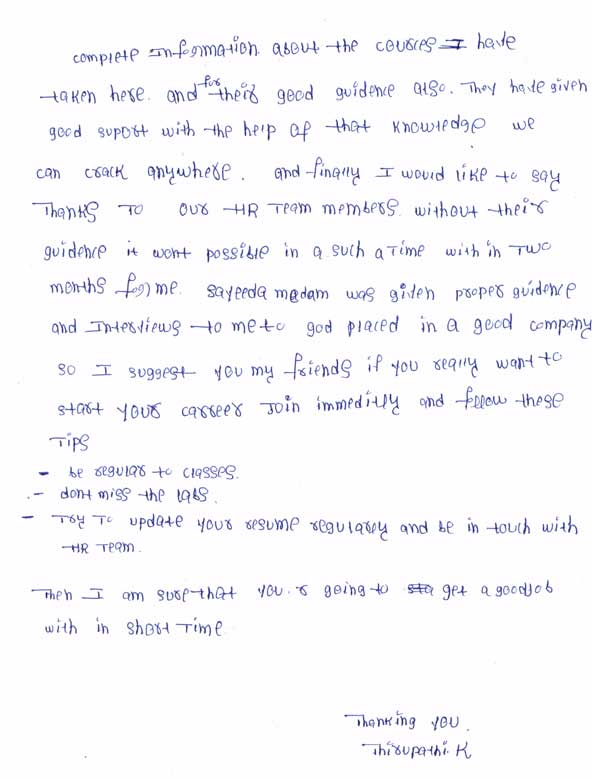 complete Information about the courses I have
taken here. and for their good guidence also. They have given
good support with the help of that knowledge we
can crack anywhere. and finally I would like to say
Thanks To our HR Team members. without their
guidence it wont possible in a such a Time with in Two
months for me. sayeeda madam was given proper guidence
and Interviews to me to god placed in a good company
so I suggest you my friends if you really want to
start your carreer Join immeditly and follow these
Tips
- be regular to classes.
- dont miss the labs.
- Try To update your resume regularly and be in touch with
HR Team.
Then I am sure that you r going to get a good job
with in short Time.
Thanking you.
Thirupathi.K